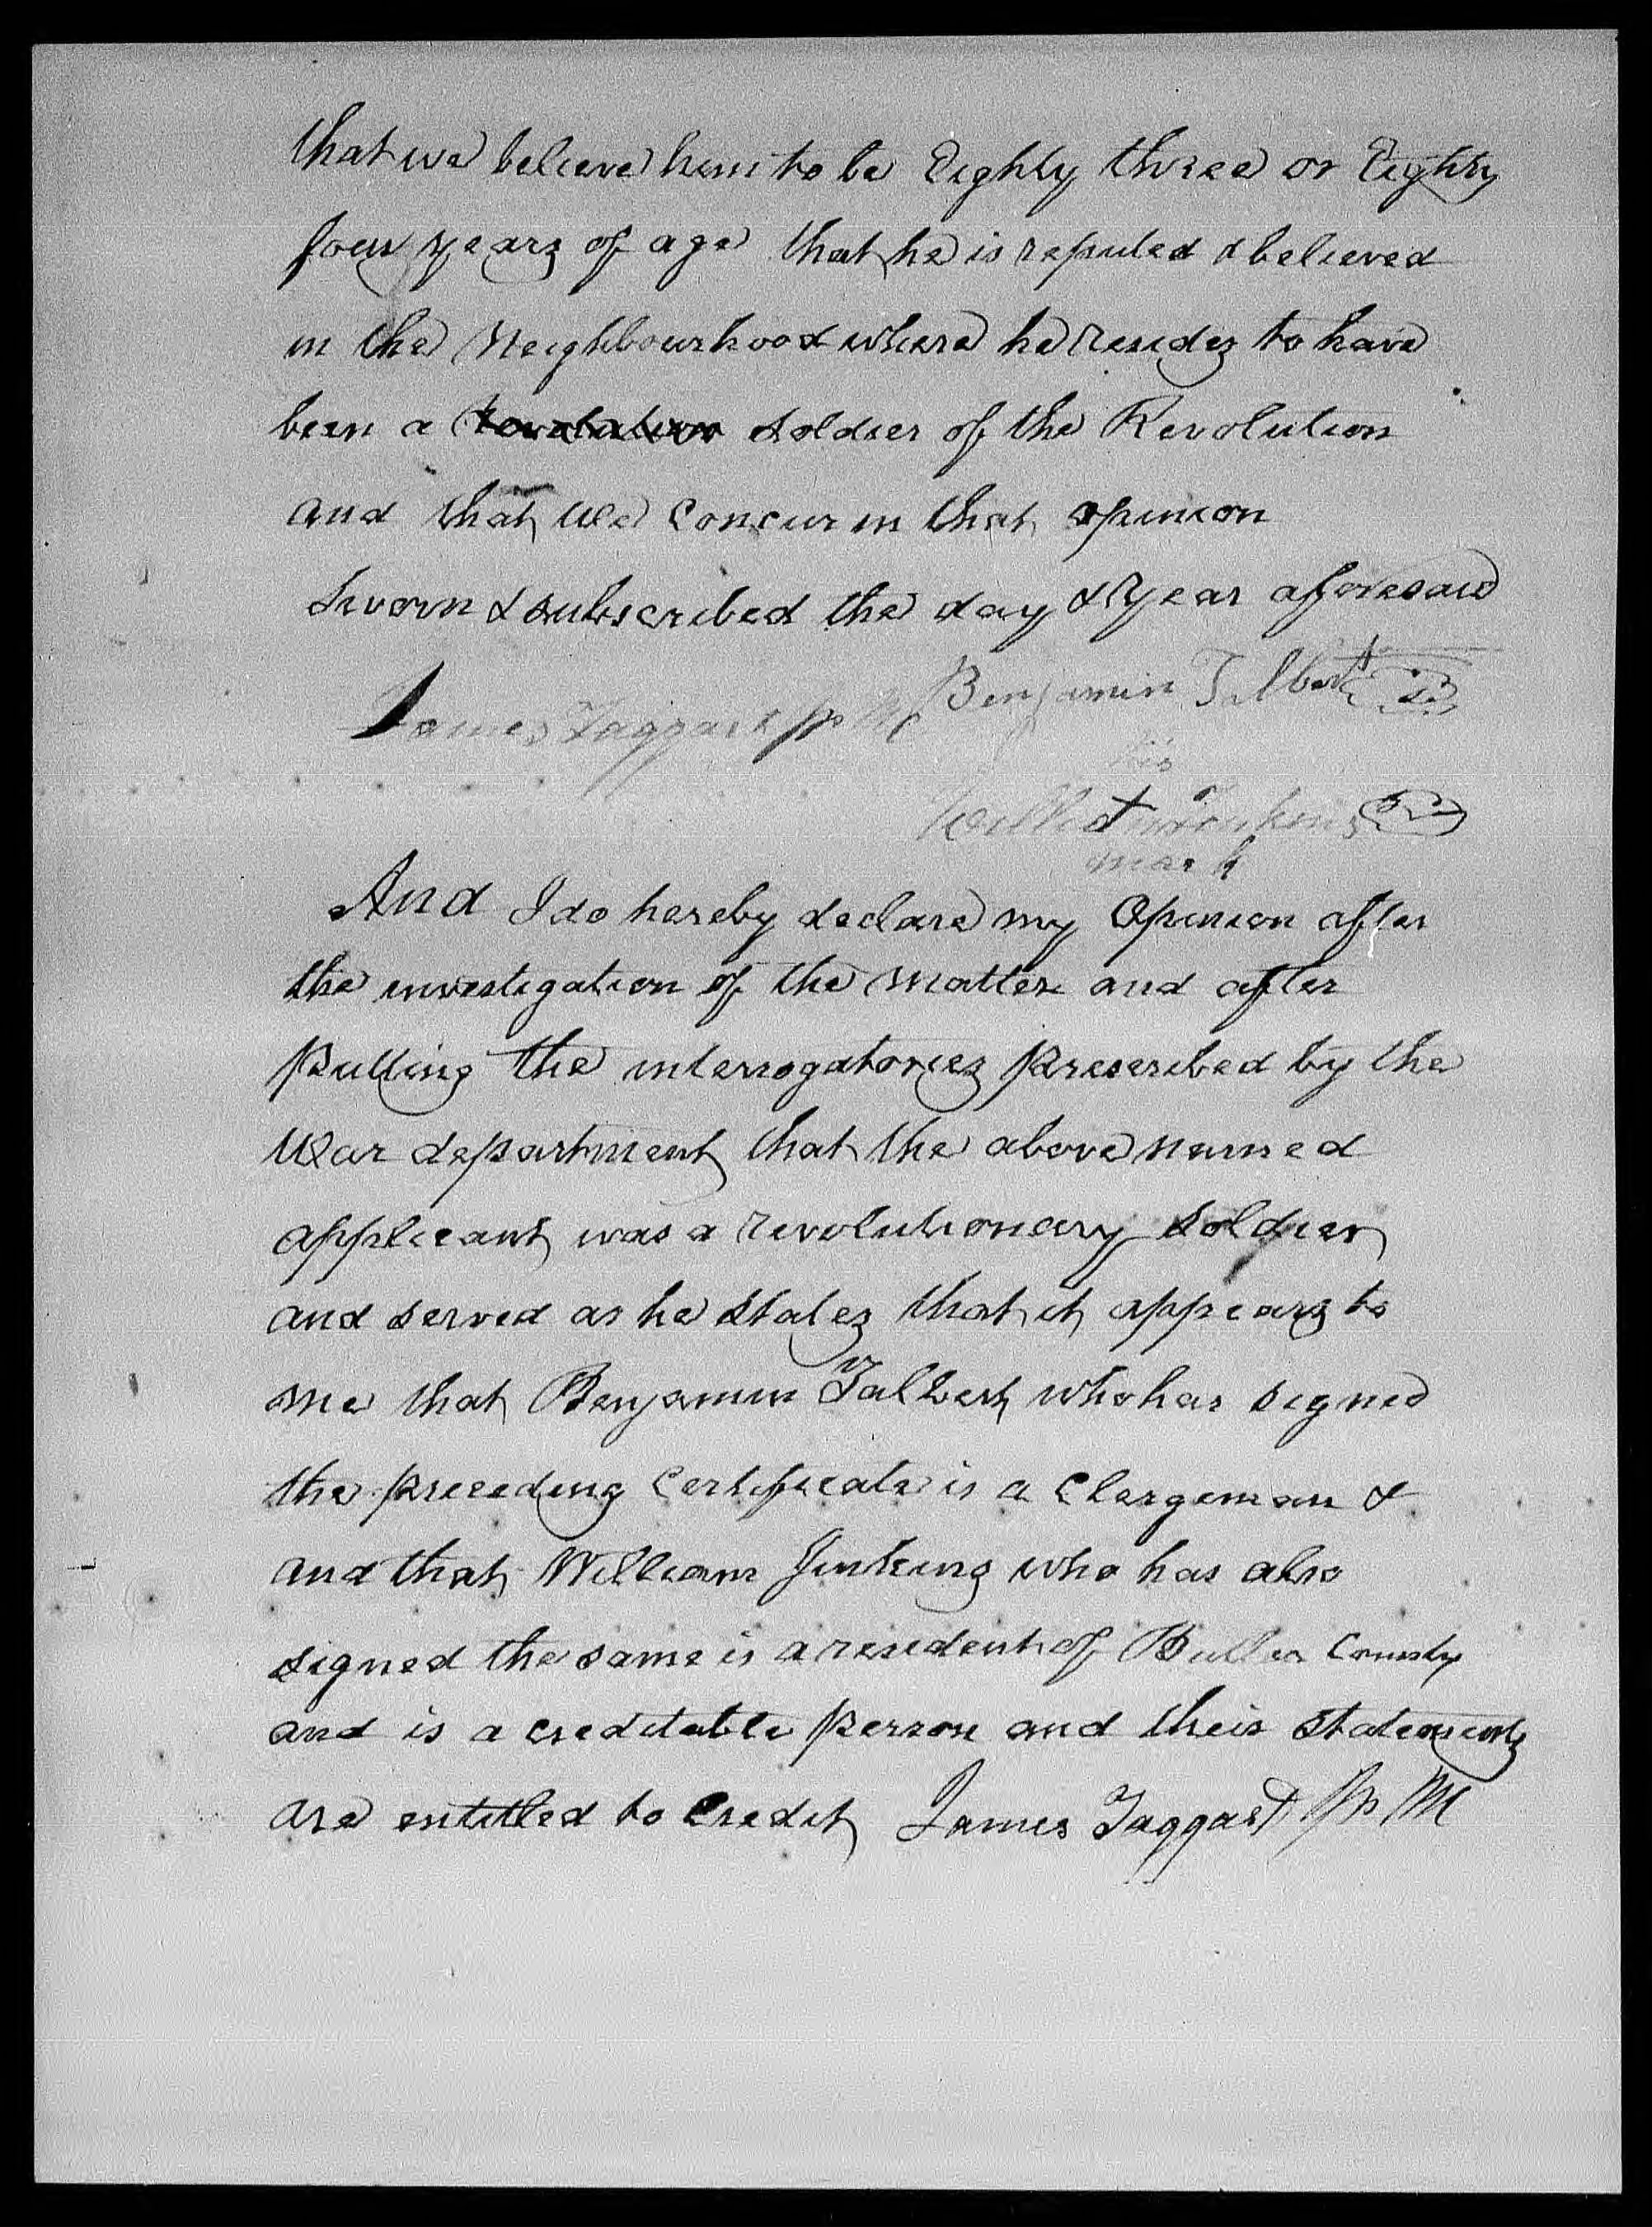 that we believe him to be Eighty three or Eighty
four years of age that he is reputed & believed
in the Neighbourhood where he resides to have
been a soldier of the Revolution
and that we concur in that opinion
Sworn & subscribed the day & year afforesaid
James Taggart JP BC Benjamin Talbert
his
mark
And I do hereby declare my Opinion after
the investigation of the matter and after
putting the interrogatories prescribed by the
War department that the above named
applicant was a revolutionary soldier
and served as he states that it appears to
me that Benjamin Talbert who has signed
the preceding Certificate is a Clergeman &
and that William Jinkins who has also
signed the same is a resident of Butler County
and is a creditable person and their statements
are entitled to Credit James Taggart